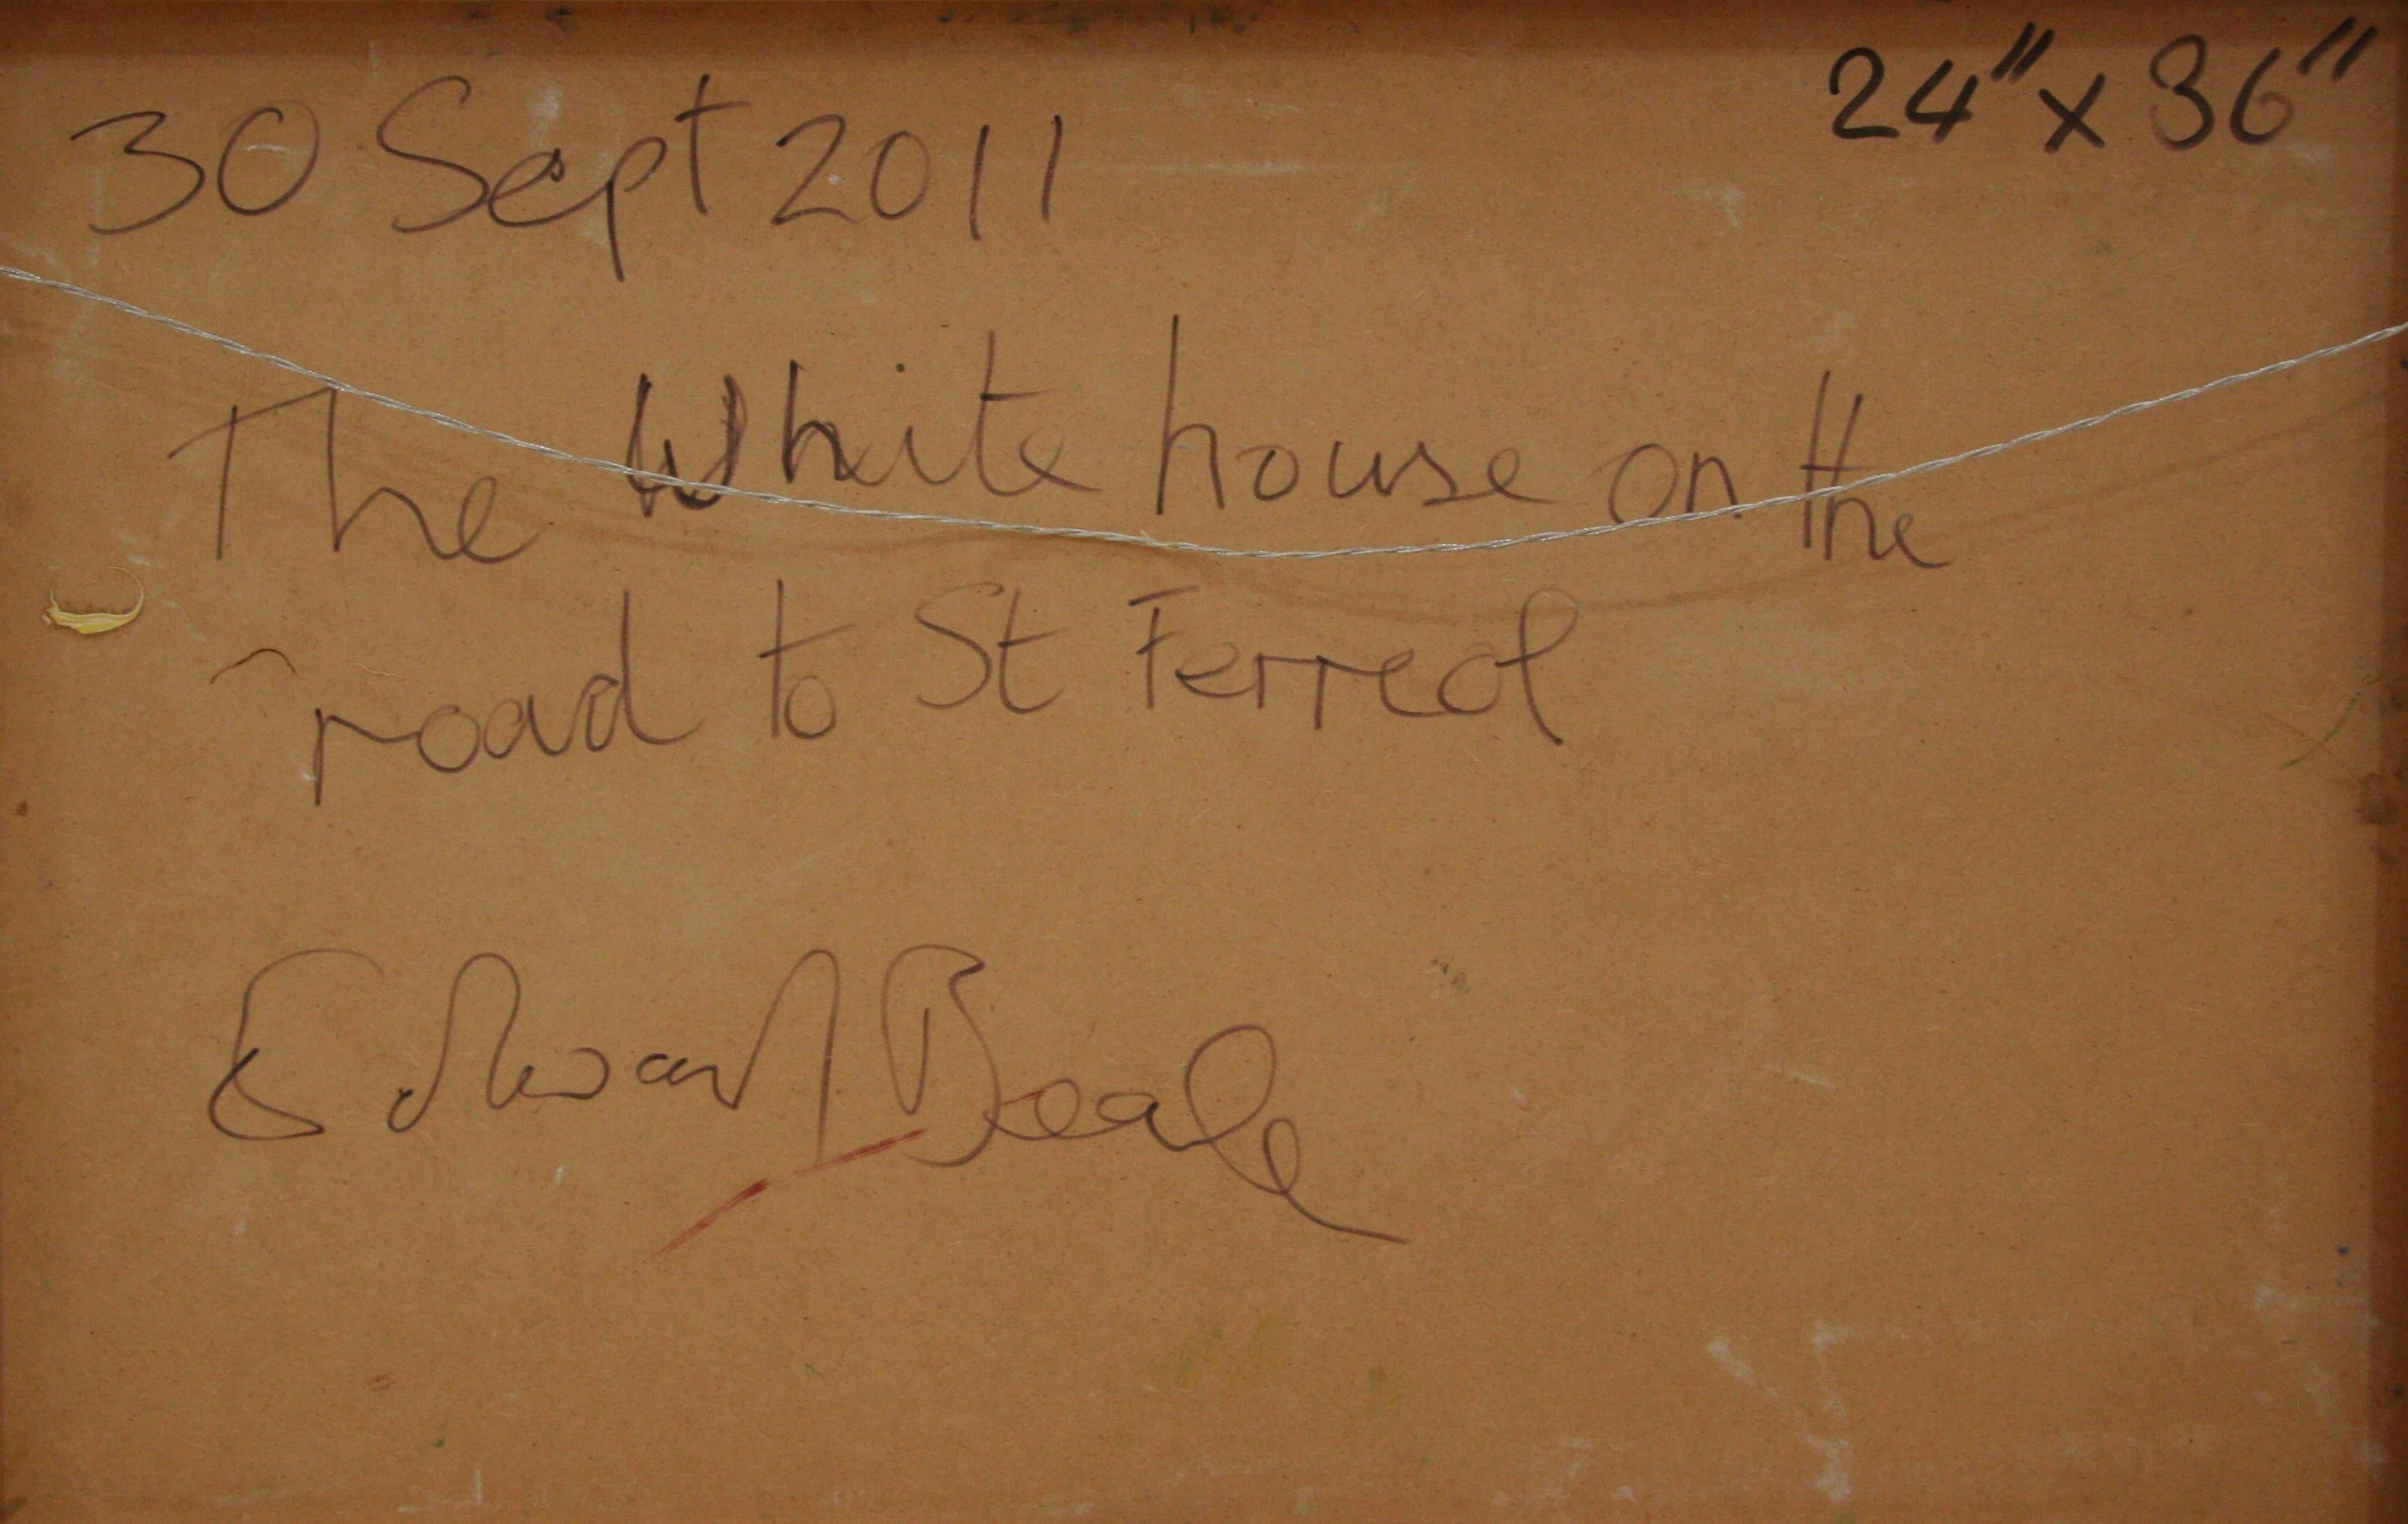 30 Sept 2011
24" x 36"
The White house on the
road to St Ferreol
Edward Beale